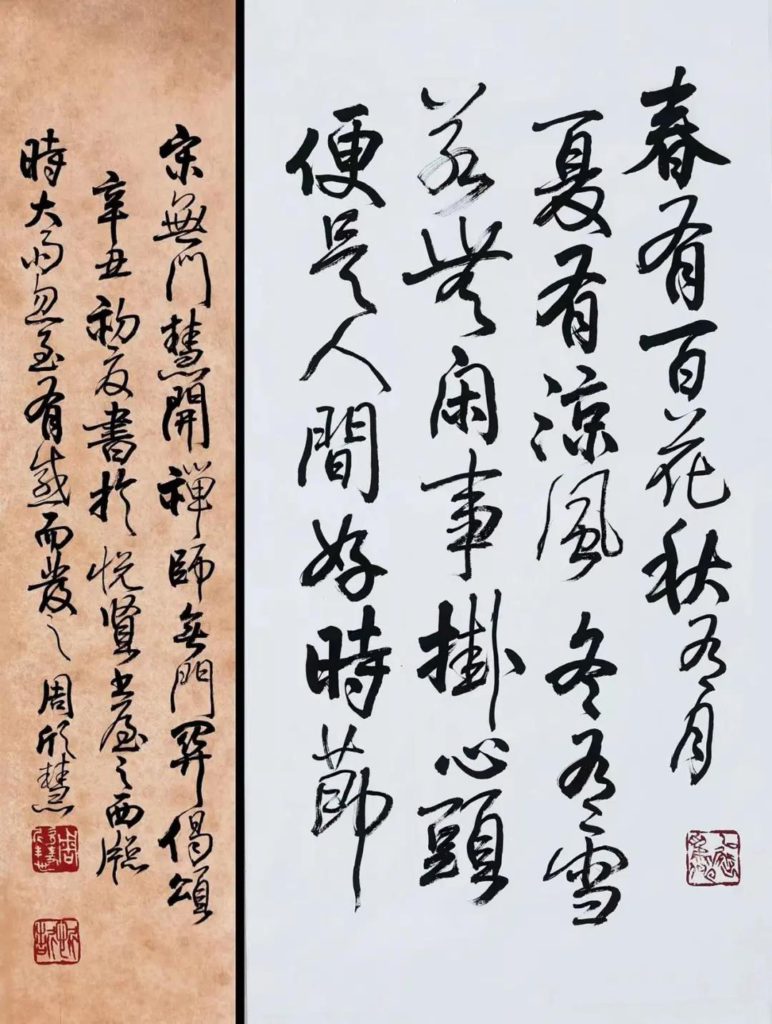 春有百花秋有月
夏有涼風冬有雪
若無閑事掛心頭
便是人間好時節
宋無門慧開禪師無門關偈頌
辛丑初夏書於悦賢書屋之西牕
時大雨忽至有感而發之 周欣慧